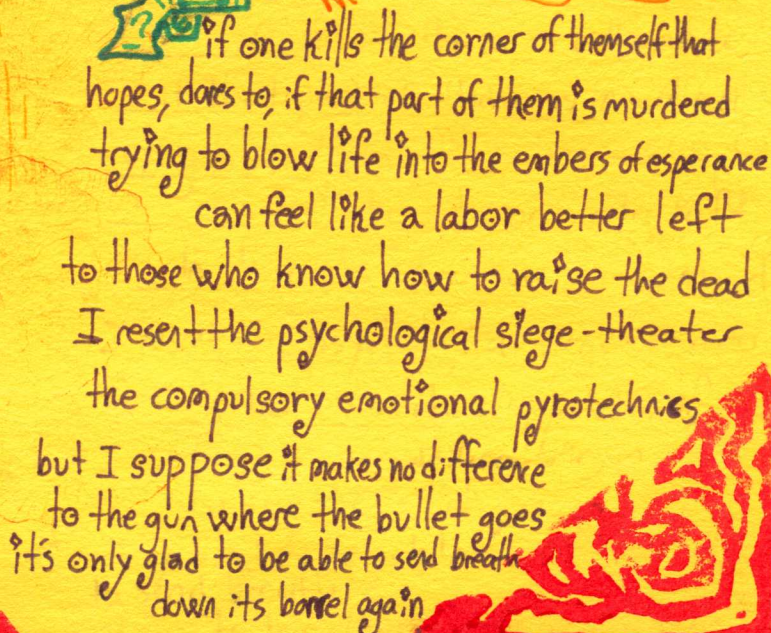 if one kills the corner of themself that
hopes, dares to, if that part of them is murdered
trying to blow life into the embers of esperance
can feel like a labor better left
to those who know how to raise the dead
I resent the psychological siege-theater
the compulsory emotional pyrotechnics
but I suppose it makes no difference
to the gun where the bullet goes
it's only glad to be able to send breath
down its barrel again